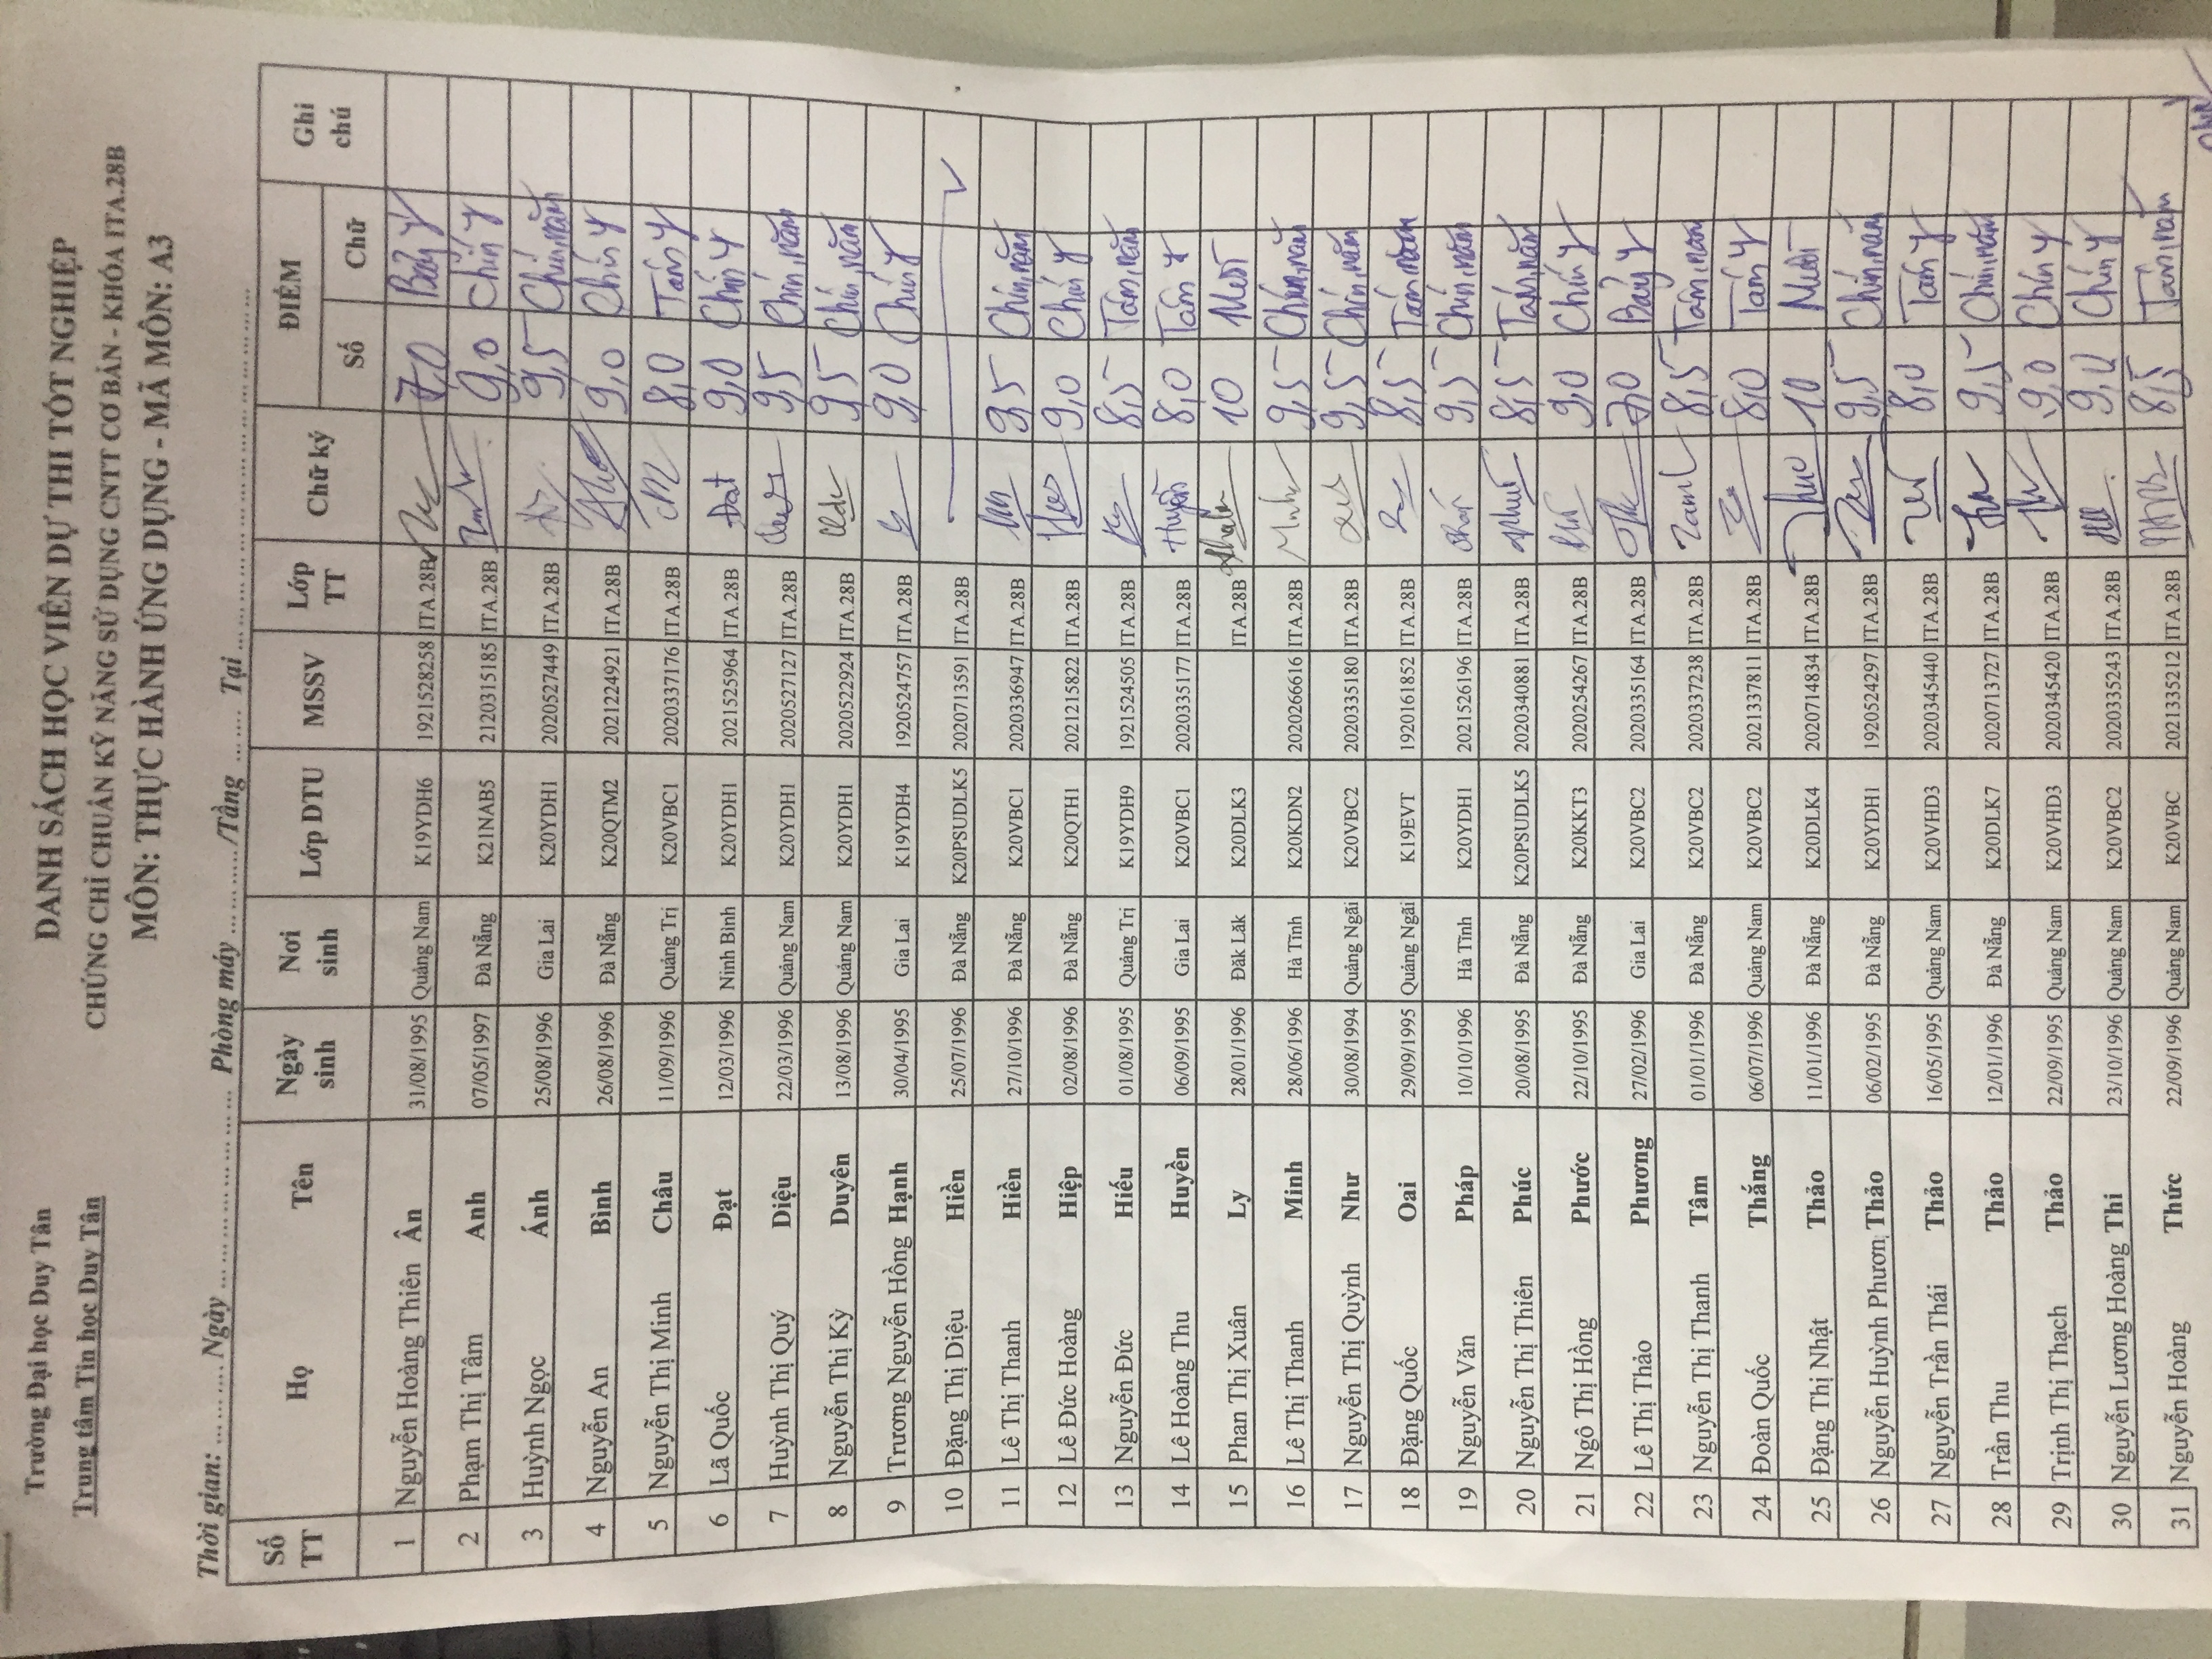 Trường Đại học Duy Tân
Trung tâm Tin học Duy Tân
DANH SÁCH HỌC VIÊN DỰ THI TỐT NGHIỆP
CHỨNG CHỈ CHUẨN KỸ NĂNG SỬ DỤNG CNTT CƠ BẢN - KHÓA ITA.28B
MÔN: THỰC HÀNH ỨNG DỤNG - MÃ MÔN: A3
Thời gian: ... .... Ngày ... ... ... ... ... ... Phòng máy ... ... ... ... /Tầng ... ... Tại ... ... ... ... ...
Số TT Họ Tên Ngày sinh Nơi sinh Lớp DTU MSSV Lớp TT Chữ ký ĐIỂM Số Chữ Ghi chú
1 Nguyễn Hoàng Thiên Ân 31/08/1995 Quảng Nam K19YDH6 1921528258 ITA.28B 7,0 Bảy y
2 Phạm Thị Tâm Anh 07/05/1997 Đà Nẵng K21NAB5 2120315185 ITA.28B 9,0 Chín y
3 Huỳnh Ngọc Ánh 25/08/1996 Gia Lai K20YDH1 2020527449 ITA.28B 9,5 Chín, năm
4 Nguyễn An Bình 26/08/1996 Đà Nẵng K20QTM2 2021224921 ITA.28B 9,0 Chín y
5 Nguyễn Thị Minh Châu 11/09/1996 Quảng Trị K20VBC1 2020337176 ITA.28B 8,0 Tám y
6 Lã Quốc Đạt 12/03/1996 Ninh Bình K20YDH1 2021525964 ITA.28B Đạt 9,0 Chín y
7 Huỳnh Thị Quý Diệu 22/03/1996 Quảng Nam K20YDH1 2020527127 ITA.28B 9,5 Chín, năm
8 Nguyễn Thị Kỳ Duyên 13/08/1996 Quảng Nam K20YDH1 2020522924 ITA.28B 9,5 Chín, năm
9 Trương Nguyễn Hồng Hạnh 30/04/1995 Gia Lai K19YDH4 1920524757 ITA.28B 9,0 Chín y
10 Đặng Thị Diệu Hiền 25/07/1996 Đà Nẵng K20PSUDLK5 2020713591 ITA.28B
11 Lê Thị Thanh Hiền 27/10/1996 Đà Nẵng K20VBC1 2020336947 ITA.28B 9,5 Chín, năm
12 Lê Đức Hoàng Hiệp 02/08/1996 Đà Nẵng K20QTH1 2021215822 ITA.28B 9,0 Chín y
13 Nguyễn Đức Hiếu 01/08/1995 Quảng Trị K19YDH9 1921524505 ITA.28B 8,5 Tám, năm
14 Lê Hoàng Thu Huyền 06/09/1995 Gia Lai K20VBC1 2020335177 ITA.28B Huyền 8,0 Tám y
15 Phan Thị Xuân Ly 28/01/1996 Đăk Lăk K20DLK3 ITA.28B 10 Mười
16 Lê Thị Thanh Minh 28/06/1996 Hà Tĩnh K20KDN2 2020266616 ITA.28B Minh 9,5 Chín, năm
17 Nguyễn Thị Quỳnh Như 30/08/1994 Quảng Ngãi K20VBC2 2020335180 ITA.28B 9,5 Chín, năm
18 Đặng Quốc Oai 29/09/1995 Quảng Ngãi K19EVT 1920161852 ITA.28B 8,5 Tám, năm
19 Nguyễn Văn Pháp 10/10/1996 Hà Tĩnh K20YDH1 2021526196 ITA.28B 9,5 Chín, năm
20 Nguyễn Thị Thiên Phúc 20/08/1995 Đà Nẵng K20PSUDLK5 2020340881 ITA.28B 8,5 Tám, năm
21 Ngô Thị Hồng Phước 22/10/1995 Đà Nẵng K20KKT3 2020254267 ITA.28B 9,0 Chín y
22 Lê Thị Thảo Phương 27/02/1996 Gia Lai K20VBC2 2020335164 ITA.28B 7,0 Bảy y
23 Nguyễn Thị Thanh Tâm 01/01/1996 Đà Nẵng K20VBC2 2020337238 ITA.28B 8,5 Tám, năm
24 Đoàn Quốc Thắng 06/07/1996 Quảng Nam K20VBC2 2021337811 ITA.28B 8,0 Tám y
25 Đặng Thị Nhật Thảo 11/01/1996 Đà Nẵng K20DLK4 2020714834 ITA.28B 10 Mười
26 Nguyễn Huỳnh Phươn Thảo 06/02/1995 Đà Nẵng K20YDH1 1920524297 ITA.28B 9,5 Chín, năm
27 Nguyễn Trần Thái Thảo 16/05/1995 Quảng Nam K20VHD3 2020345440 ITA.28B 8,0 Tám y
28 Trần Thu Thảo 12/01/1996 Đà Nẵng K20DLK7 2020713727 ITA.28B 9,5 Chín, năm
29 Trịnh Thị Thạch Thảo 22/09/1995 Quảng Nam K20VHD3 2020345420 ITA.28B 9,0 Chín y
30 Nguyễn Lương Hoàng Thi 23/10/1996 Quảng Nam K20VBC2 2020335243 ITA.28B 9,0 Chín y
31 Nguyễn Hoàng Thức 22/09/1996 Quảng Nam K20VBC 2021335212 ITA.28B 8,5 Tám, năm